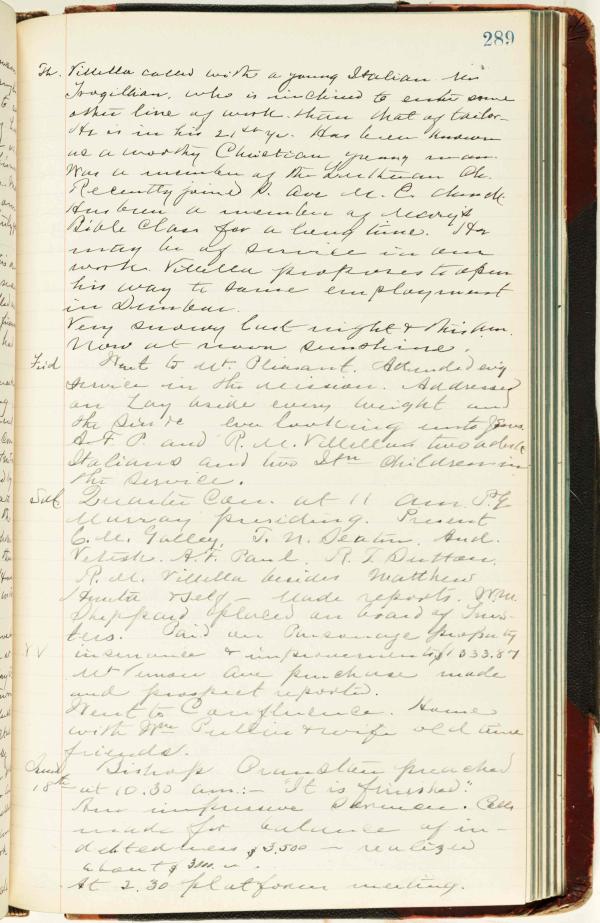 289
Th. Villella called with a young Italian Mr
Trogillian, who is inclined to enter some
other line of work than that of tailor-
He is in his 21st yr. Has been known
as a worthy Christian young man.
Was a member of the Lutheran Ch.
Recently joined S. Ave M. E. Church.
Has been a member of
Bible Class for a long time. He
may be of service in our
work. Villella proposes to open
his way to some employment
in Dunbar.
Very snowy last night & this am.
Now at noon sunshine.
Frid Went to Mt. Pleasant. Attended evig
service in the Mission. Addressed
on Lay aside every weight and
the Sin &c ever looking unto Jesus.
A. F. P. and R. M. Villella & two adult
Italians and two Itn children in
the service.
Sat. Quarter Con. at 11 am. P. G
Murray presiding. Present
C. M. Galley, T. N. Deaton, And.
A. F. Paul. R. T. Dutton,
R. M. Villella besides Matthew
& self - Made reports. Wm
Sheppard placed on board of Trus-
tees. Paid on Parsonage property
VV insurance & improvements $1333.87
Mt Vernon Ave purchase made
and prospect reported.
Went to Confluence. Home
with Wm Pullin & wife old time
friends.
Sund 18th Bishop Cranston preached
at 10.30 am:- "It is finished".
An impressive sermon. Calls
made for balance of in-
debtedness $3,500 - realized
about $3000.
At 2.30 platform meeting.